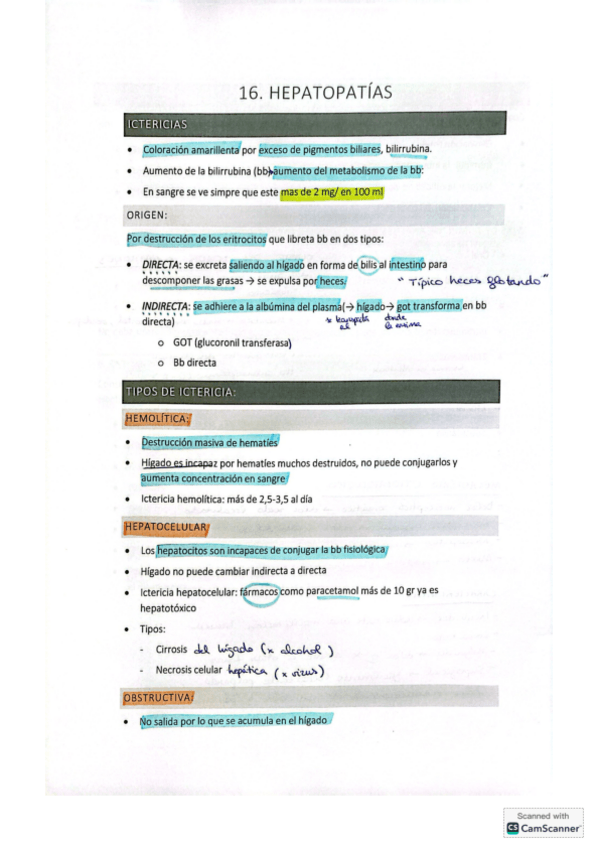 16. HEPATOPATÍAS
ICTERICIAS
• Coloración amarillenta por exceso de pigmentos biliares, bilirrubina.
• Aumento de la bilirrubina (bb)→aumento del metabolismo de la bb:
• En sangre se ve simpre que este mas de 2 mg/ en 100 ml
ORIGEN:
Por destrucción de los eritrocitos que libreta bb en dos tipos:
• DIRECTA: se excreta saliendo al hígado en forma de bilis al intestino para
descomponer las grasas → se expulsa por heces/
"Típico heces flotando"
• INDIRECTA: se adhiere a la albúmina del plasma(→ hígado→ got transforma en bb
directa)
donde
o GOT (glucoronil transferasa)
o Bb directa
TIPOS DE ICTERICIA:
HEMOLÍTICA:
• Destrucción masiva de hematíes
• Hígado es incapaz por hematíes muchos destruidos, no puede conjugarlos y
aumenta concentración en sangre
• Ictericia hemolítica: más de 2,5-3,5 al día
HEPATOCELULAR
• Los hepatocitos son incapaces de conjugar la bb fisiológica
• Hígado no puede cambiar indirecta a directa
• Ictericia hepatocelular: fármacos como paracetamol más de 10 gr ya es
hepatotóxico
• Tipos:
- Cirrosis del hígado (x alcohol)
- Necrosis celular hepática (x virus)
OBSTRUCTIVA:
• No salida por lo que se acumula en el hígado
Scanned with
CS CamScanner